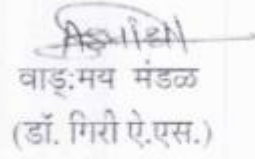 वाङ्:मय मंडळ
(डॉ. गिरी ऐ.एस.)